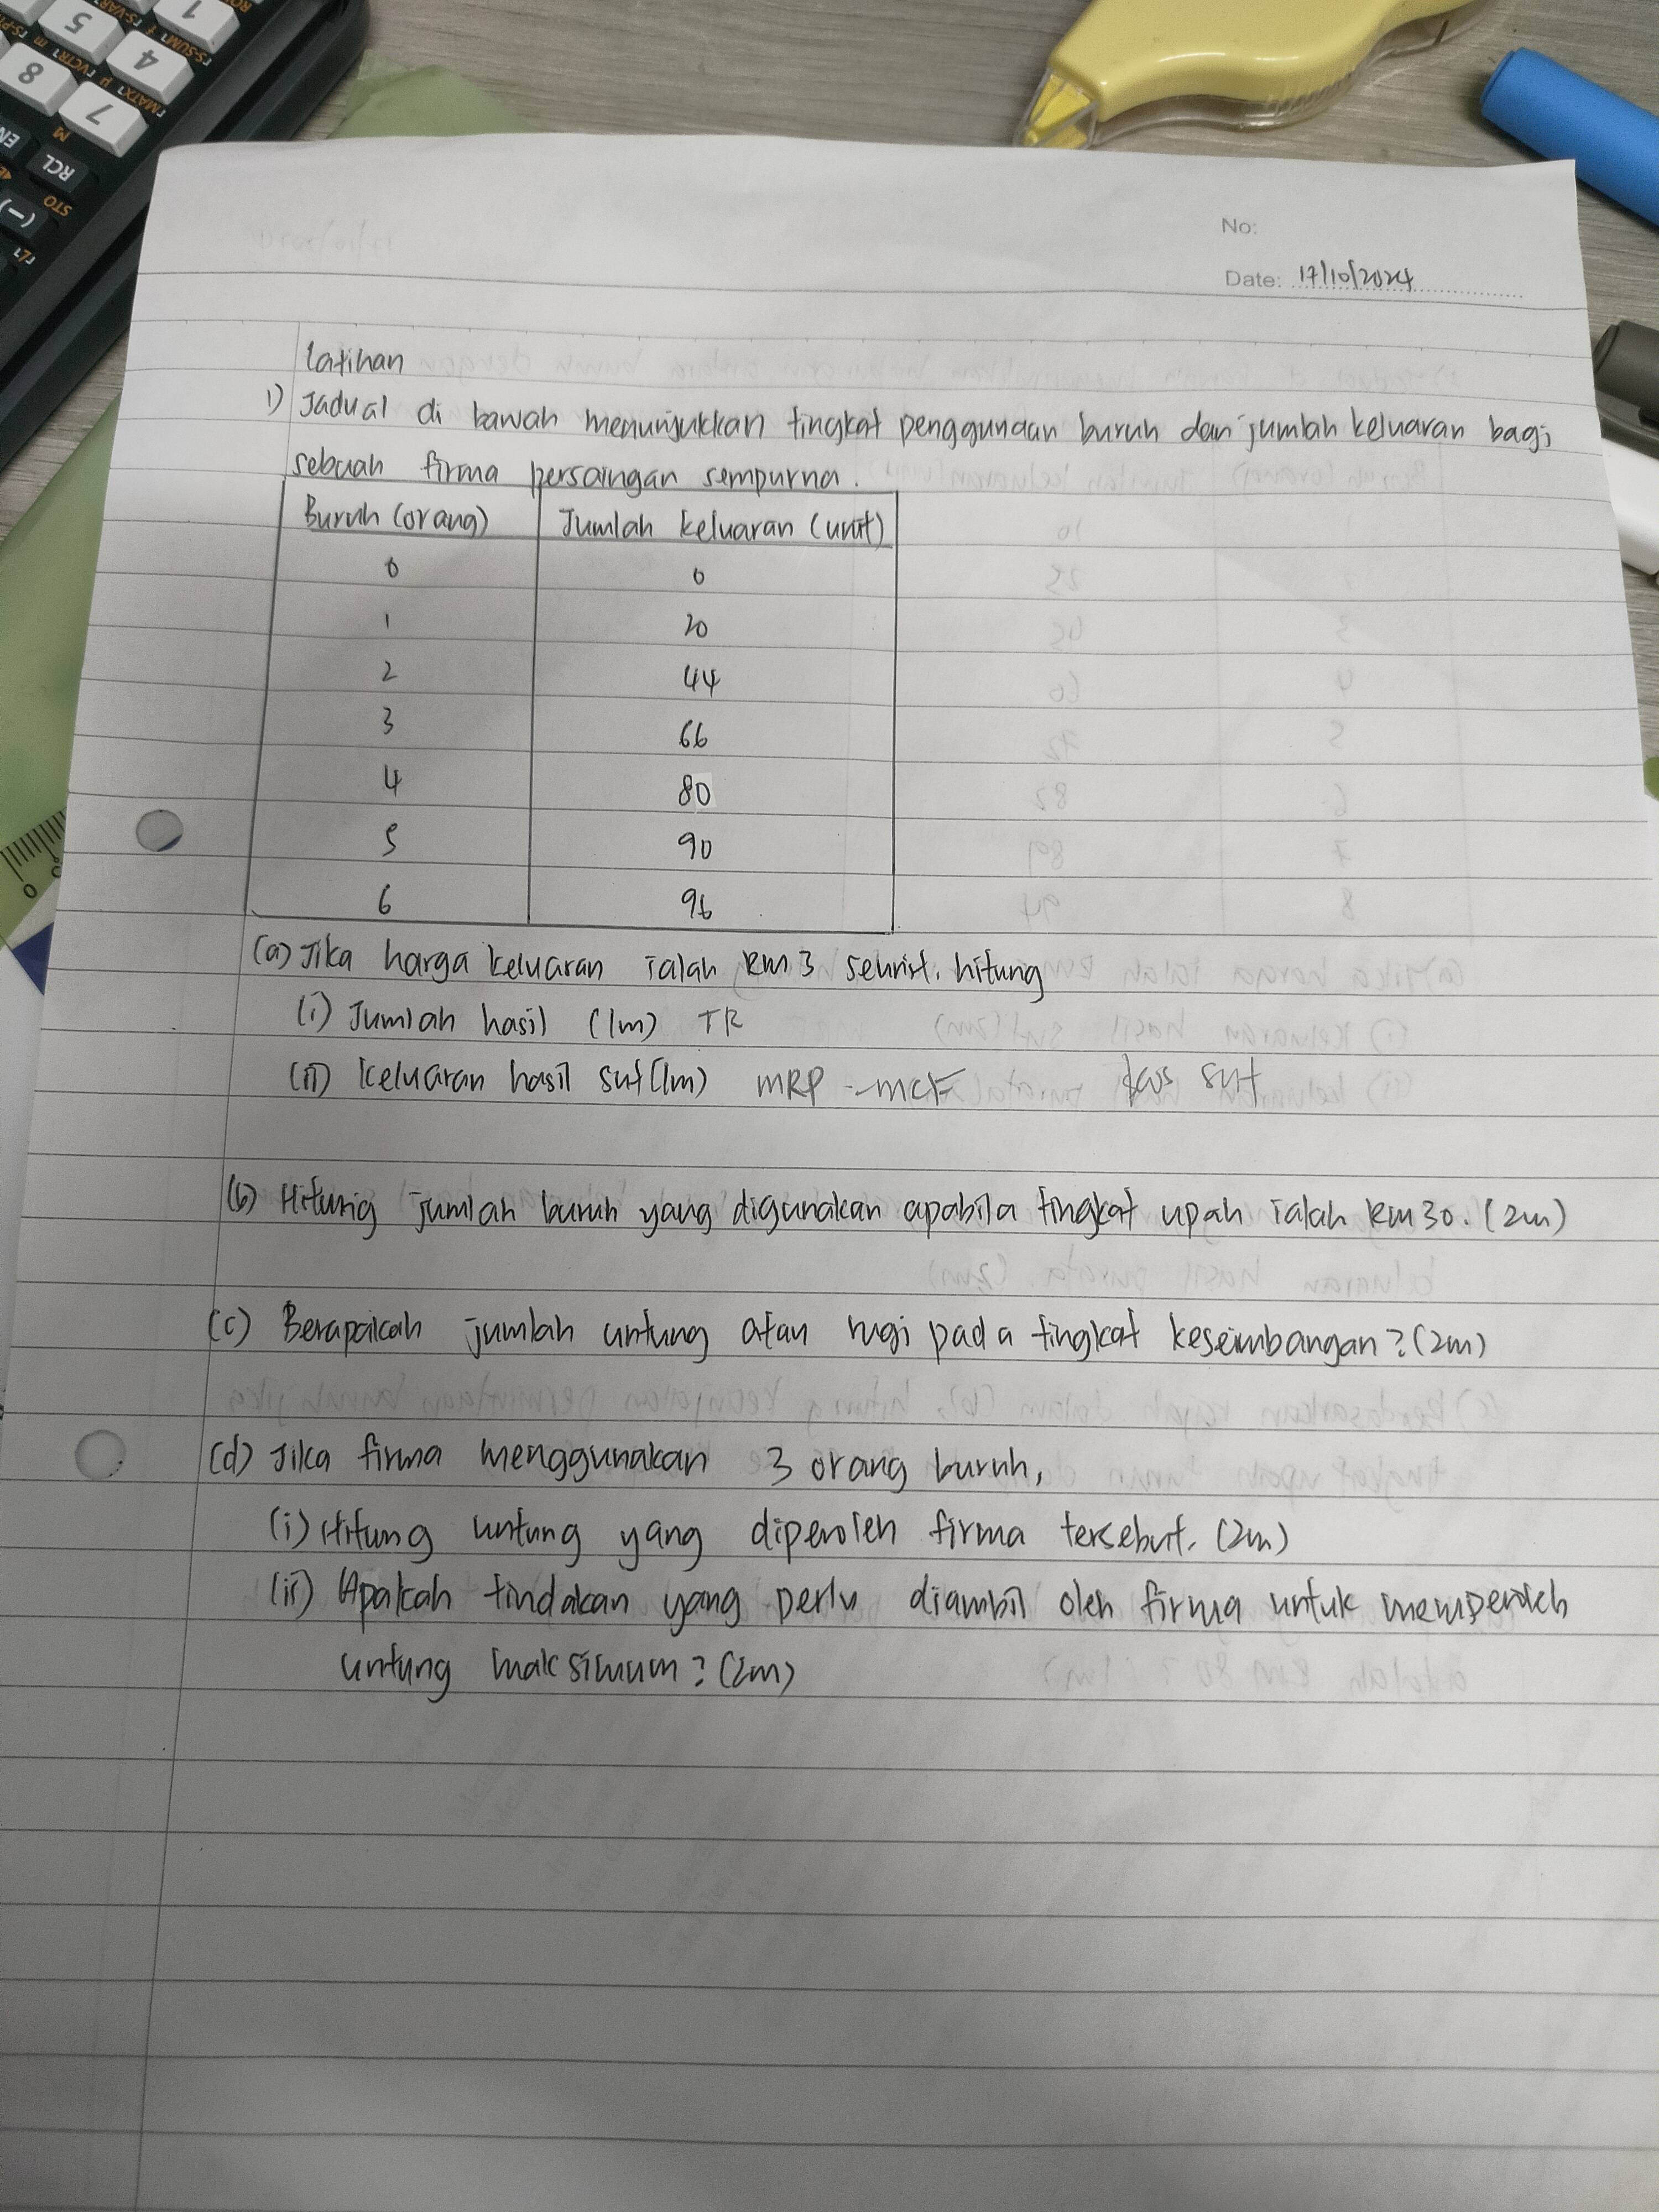 No:
Date: 17/10/2024
Latihan
1) Jadual di bawah menunjukkan tingkat penggunaan buruh dan jumlah keluaran bagi
sebuah firma persaingan sempurna.
Buruh (orang) Jumlah keluaran (unit)
0 0
1 20
2 44
3 66
4 80
5 90
6 96
(a) Jika harga keluaran ialah RM 3 seunit, hitung
(i) Jumlah hasil (1m) TR
(ii) keluaran hasil sut (1m) MRP - MCF kos sut
(b) Hitung jumlah buruh yang digunakan apabila tingkat upah ialah RM 30. (2m)
(c) Berapakah jumlah untung atau rugi pada tingkat keseimbangan? (2m)
(d) Jika firma menggunakan 3 orang buruh,
(i) Hitung untung yang diperoleh firma tersebut. (2m)
(ii) Apakah tindakan yang perlu diambil oleh firma untuk memperoleh
untung maksimum? (2m)